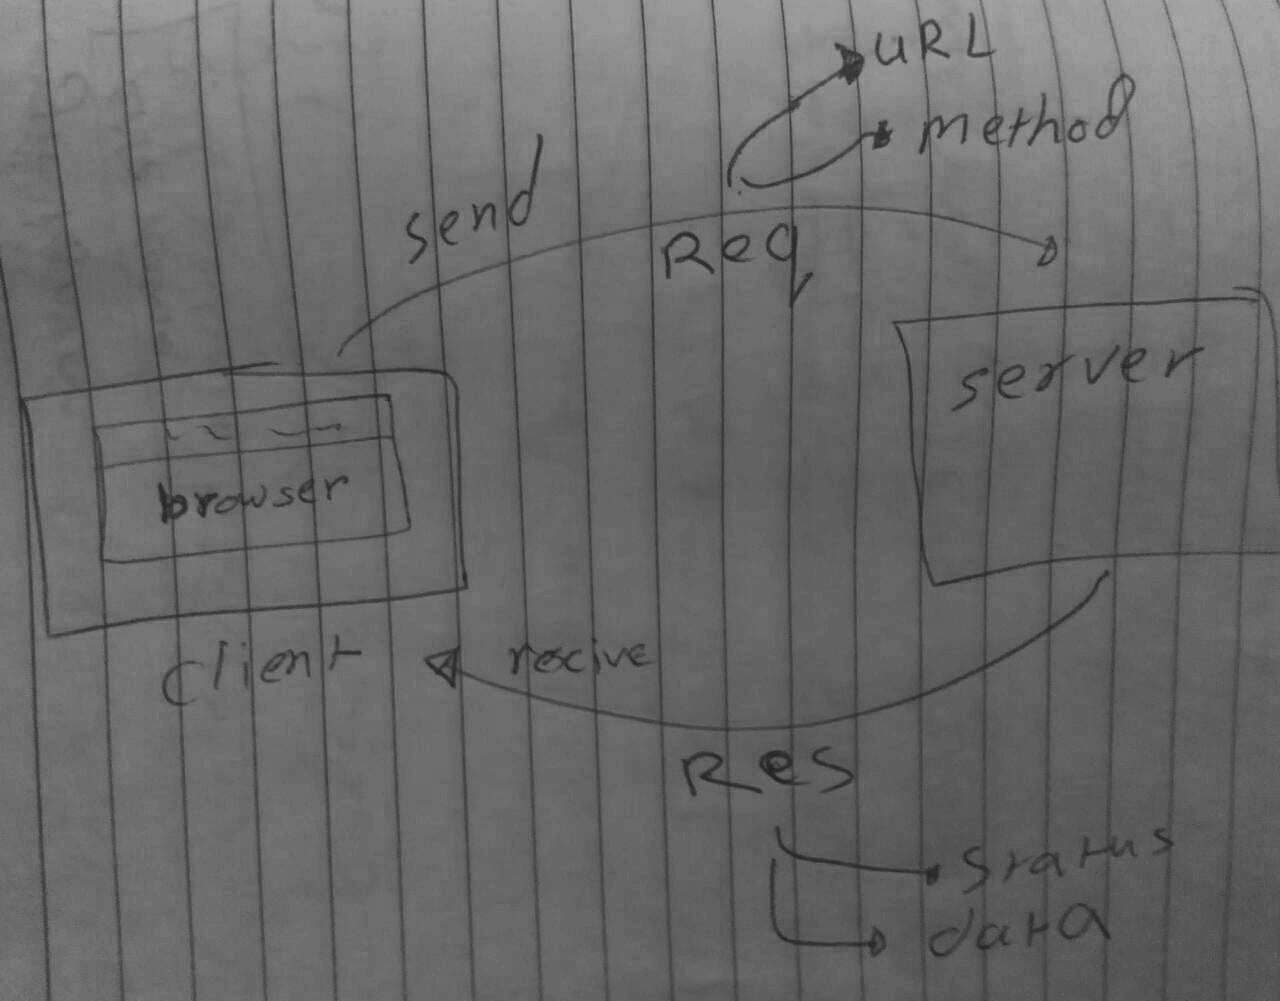 URL
method
send
Req
server
browser
client
recive
Res
Status
data